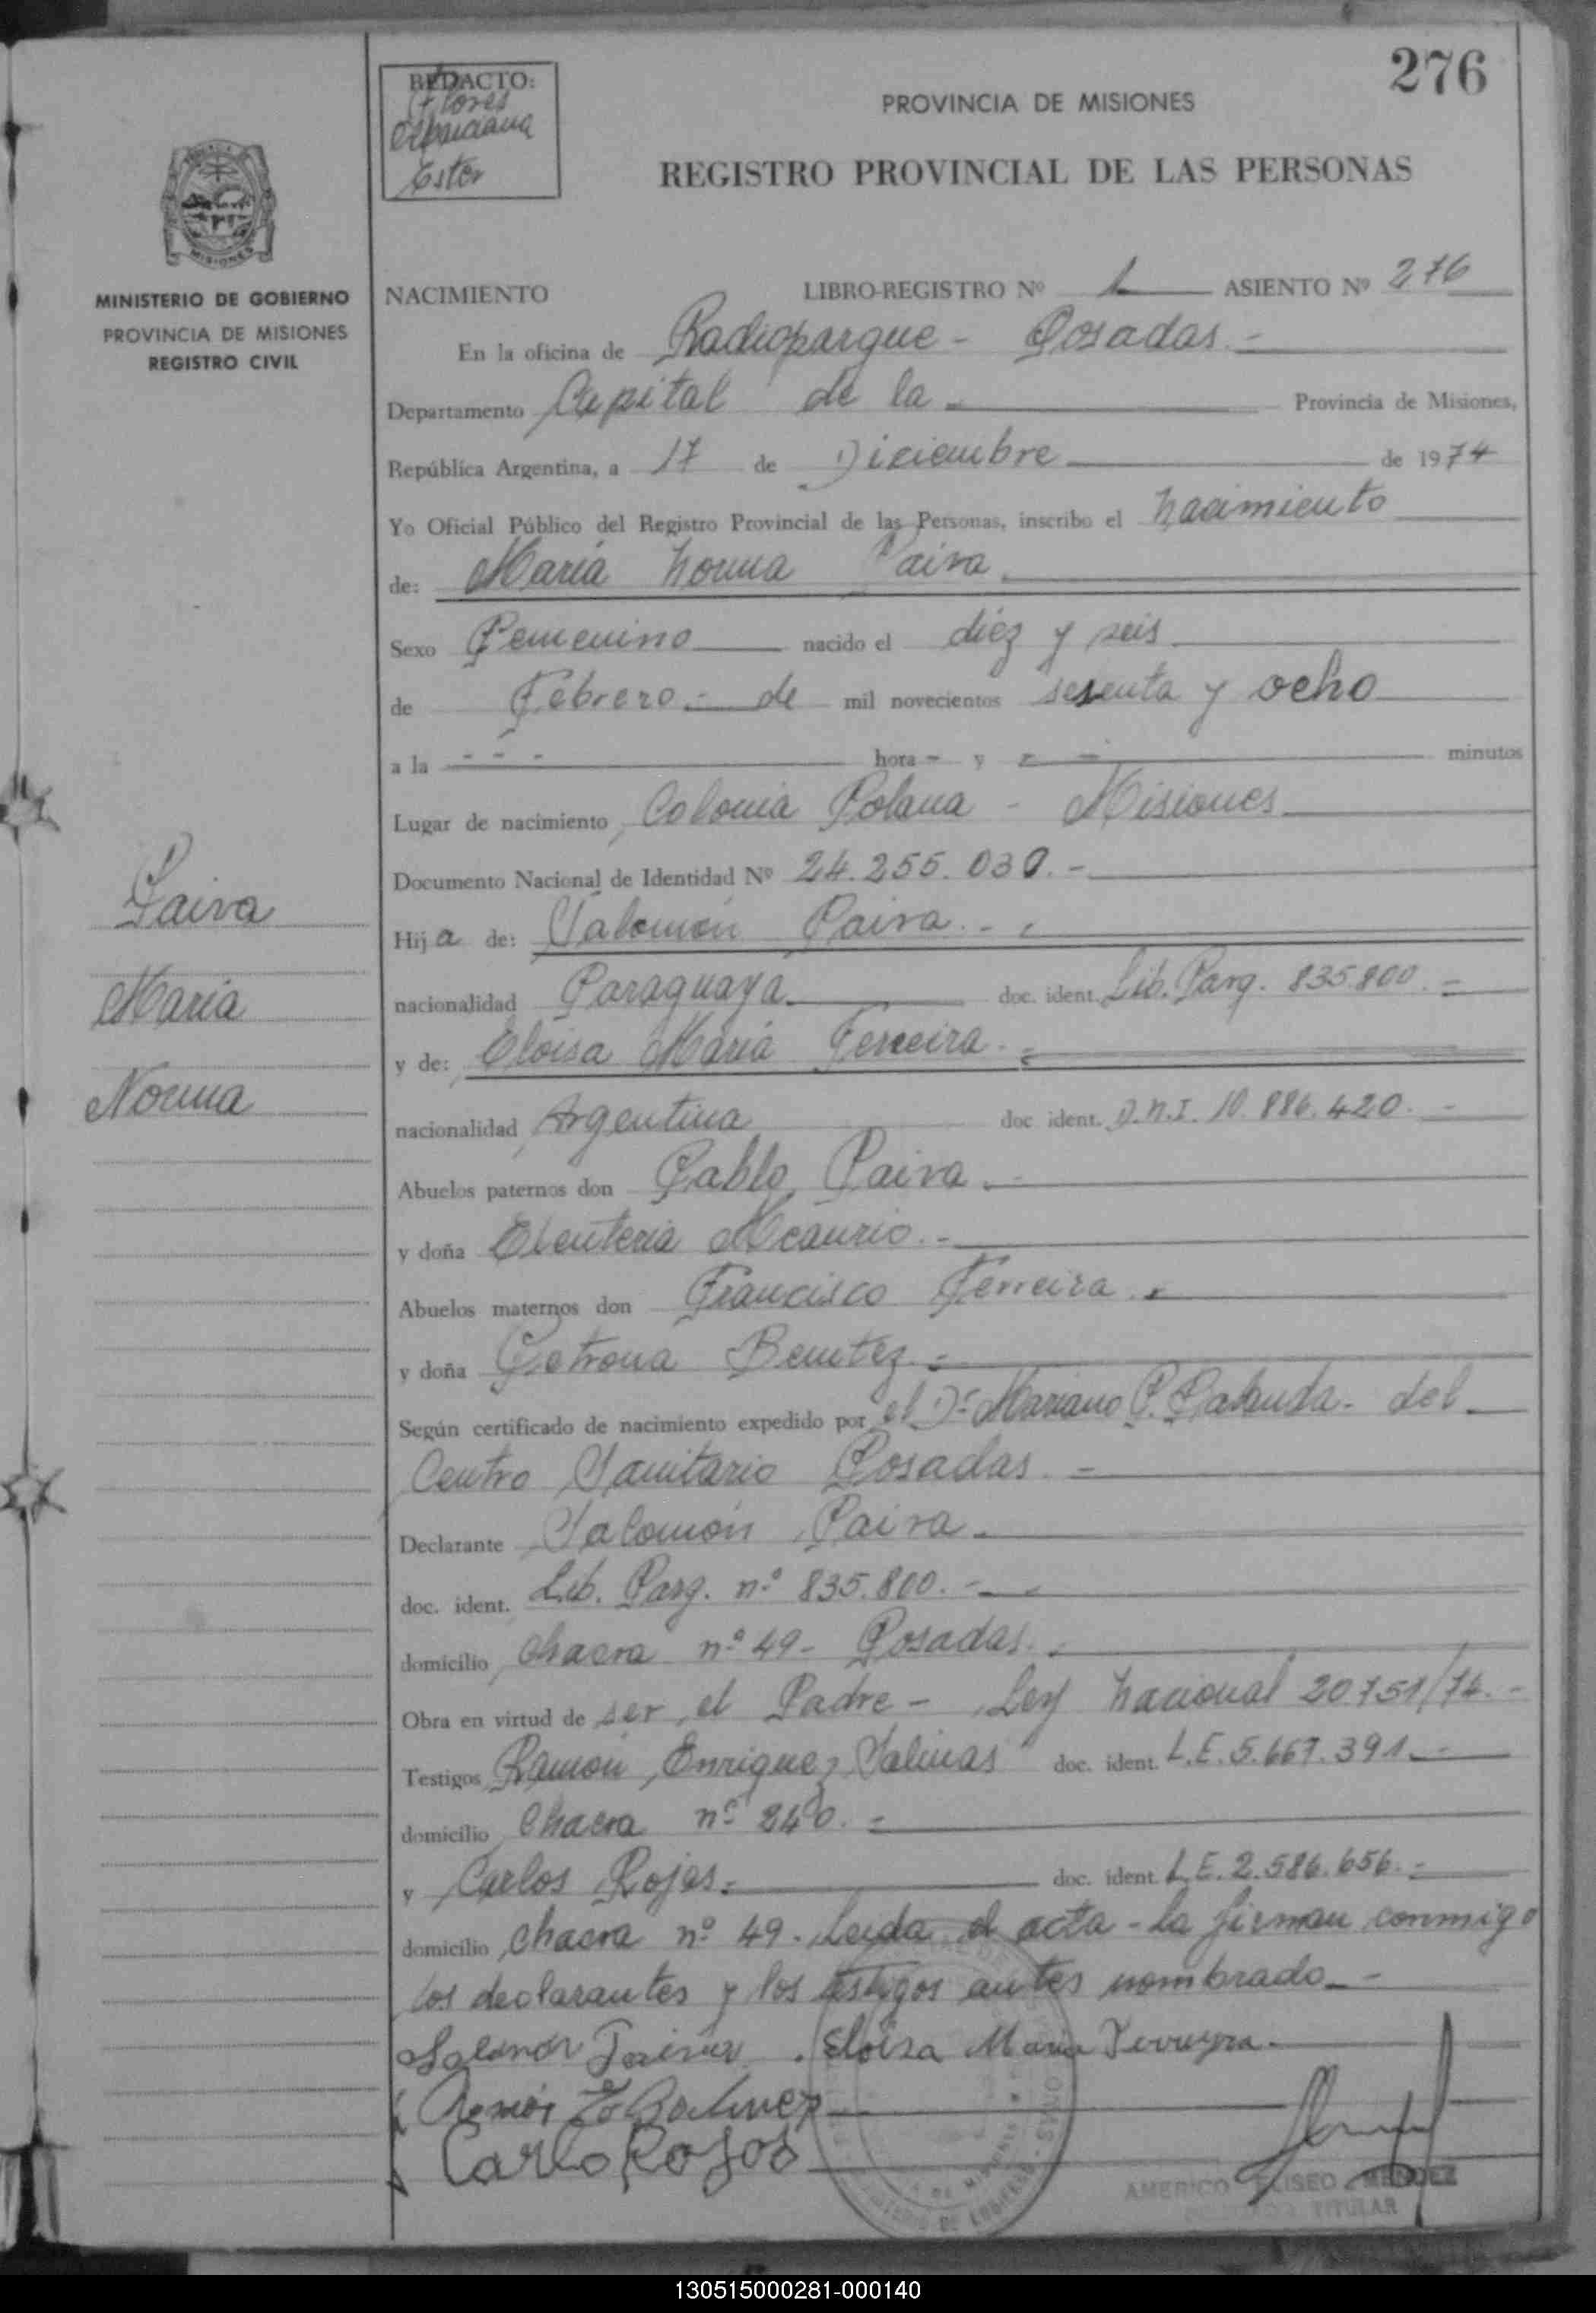 276
REDACTO:
Flores
Ester
PROVINCIA DE MISIONES
REGISTRO PROVINCIAL DE LAS PERSONAS
MISIONES
MINISTERIO DE GOBIERNO
PROVINCIA DE MISIONES
REGISTRO CIVIL
NACIMIENTO LIBRO-REGISTRO Nº 1 ASIENTO Nº 276
En la oficina de Radioparque - Posadas.-
Departamento Capital de la Provincia de Misiones,
República Argentina, a 17 de Diciembre de 1974
Yo Oficial Público del Registro Provincial de las Personas, inscribo el nacimiento
de: María Norma Paiva
Sexo Femenino nacido el diez y seis
de Febrero.- de mil novecientos sesenta y ocho
a la - - - hora - y - - minutos
Lugar de nacimiento Colonia Polana - Misiones
Documento Nacional de Identidad Nº 24.255.030.-
Paiva
María
Norma
Hija de: Salomón Paiva.-
nacionalidad Paraguaya doc. ident. Lib. Parg. 835.800.-
y de: Eloisa María Ferreira.-
nacionalidad Argentina doc ident. D.N.I. 10.886.420.-
Abuelos paternos don Pablo Paiva.-
y doña Eleuteria Meaurio.-
Abuelos maternos don Francisco Ferreira.-
y doña Petrona Benitez.-
Según certificado de nacimiento expedido por el Dr. Mariano P. del
Centro Sanitario Posadas.-
Declarante Salomón Paiva.
doc. ident. Lib. Parg. n.º 835.800.-
domicilio Chacra nº 49- Posadas.
Obra en virtud de ser el Padre - Ley Nacional 20751/74.-
Testigos Ramón Enriquez Salinas doc. ident. L.E. 5.667.391.-
domicilio Chacra nº 240.-
y Carlos Rojas.- doc. ident. L.E. 2.586.656.-
domicilio Chacra nº 49. Leida el acta - la firman conmigo
los declarantes y los testigos antes nombrado.-
Eloisa Maria Ferreyra.
Carlo Rojos
AMERICO ELISEO MENDEZ
TITULAR
130515000281-000140